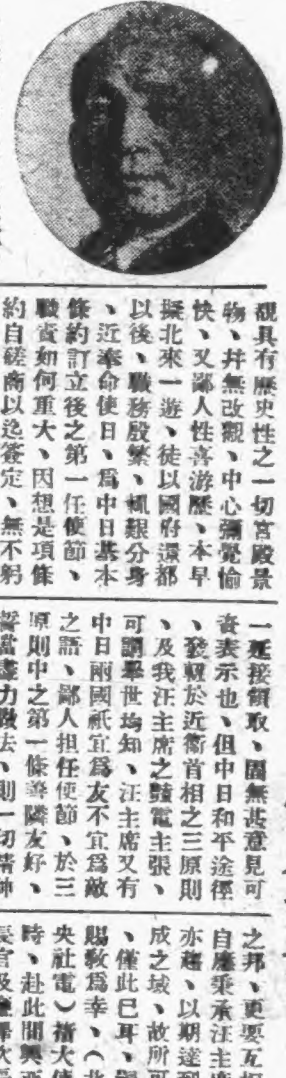 覩具有歷史性之一切宮殿景
物、幷無改觀、中心彌覺愉
快、又鄙人性喜游歷、本早
擬北來一遊、徒以國府還都
以後、職務殷繁、輒艱分身
、近奉命使日、爲中日基本
條約訂立後之第一任使節、
職責如何重大、因想是項條
約自磋商以迄簽定、無不躬
一延接領取、固無甚意見可
資表示也、但中日和平途徑
、發軔於近衛首相之三原則
、及我汪主席之豔電主張、
可謂舉世均知、汪主席又有
中日兩國祇宜爲友不宜爲敵
之語、鄙人担任使節、於三
原則中之第一條善隣友好、
誓當盡力做去、則一切精神
之邦、更要互
自應秉承汪主
亦趨、以期達到
成之域、故所可
、僅此巳耳、
賜敎爲幸、(北
央社電)褚大使
時、赴此間興亞
長官及